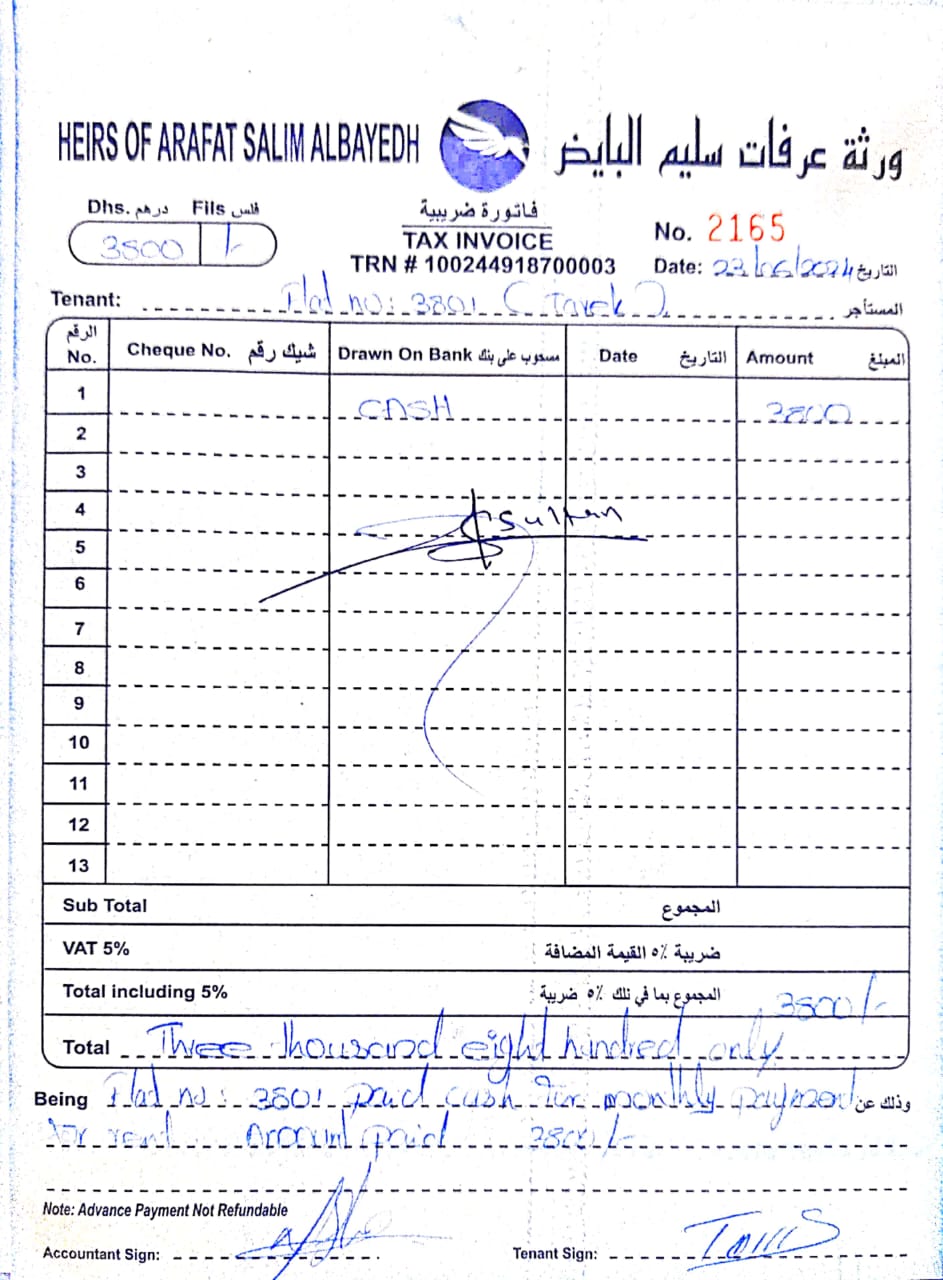 HEIRS OF ARAFAT SALIM ALBAYEDH ورثة عرفات سليم البايض
Dhs. درهم Fils فلس
3800 /-
فاتورة ضريبية
TAX INVOICE
TRN # 100244918700003
No. 2165
Date: 23/06/2024 التاريخ
Tenant: Flat no: 3801 (Tarek) المستأجر
الرقم No. Cheque No. شيك رقم Drawn On Bank مسحوب على بنك Date التاريخ Amount المبلغ
1 CASH 3800
2
3
4 Sultan
5
6
7
8
9
10
11
12
13
Sub Total المجموع
VAT 5% ضريبة ٥٪ القيمة المضافة
Total including 5% المجموع بما في تلك ٥٪ ضريبة 3800/-
Total Three thousand eight hundred only
Being Flat no: 3801 paid cash for monthly payment وذلك عن
for rent Amount paid 3800/-
Note: Advance Payment Not Refundable
Accountant Sign: Tenant Sign: